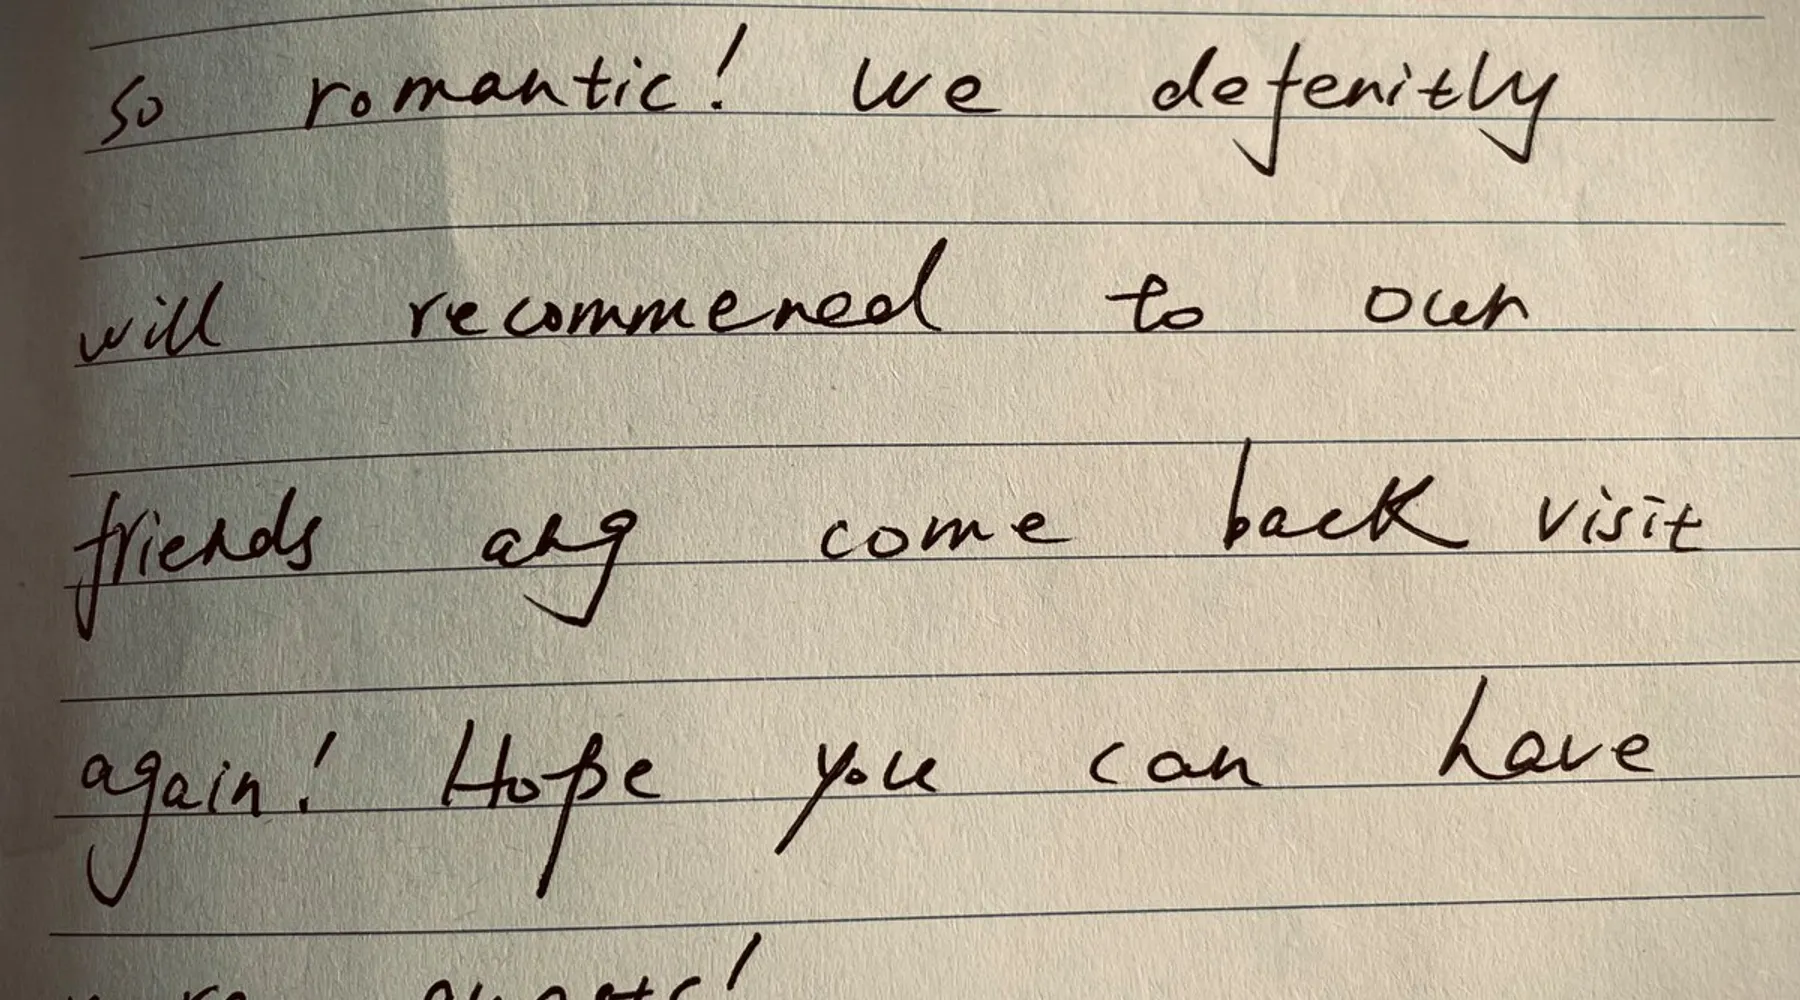 so romantic! We defenitly
will recommened to our
friends ang come back visit
again! Hope you can have